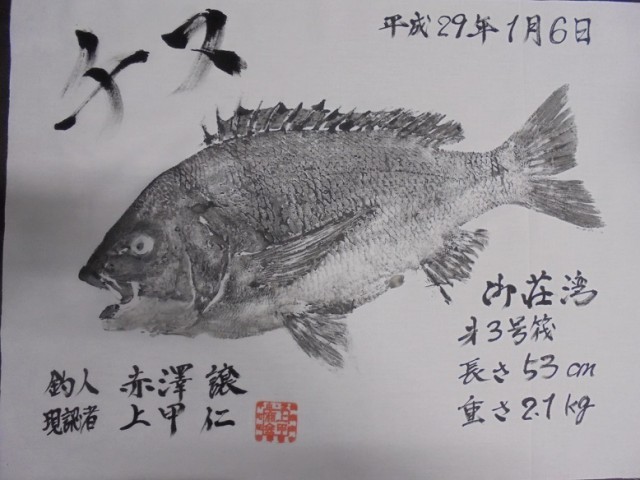 平成29年1月6日
チヌ
御荘湾
才3号筏
長さ53cm
重さ2.1kg
釣人 赤澤 譲
現認者 上甲 仁